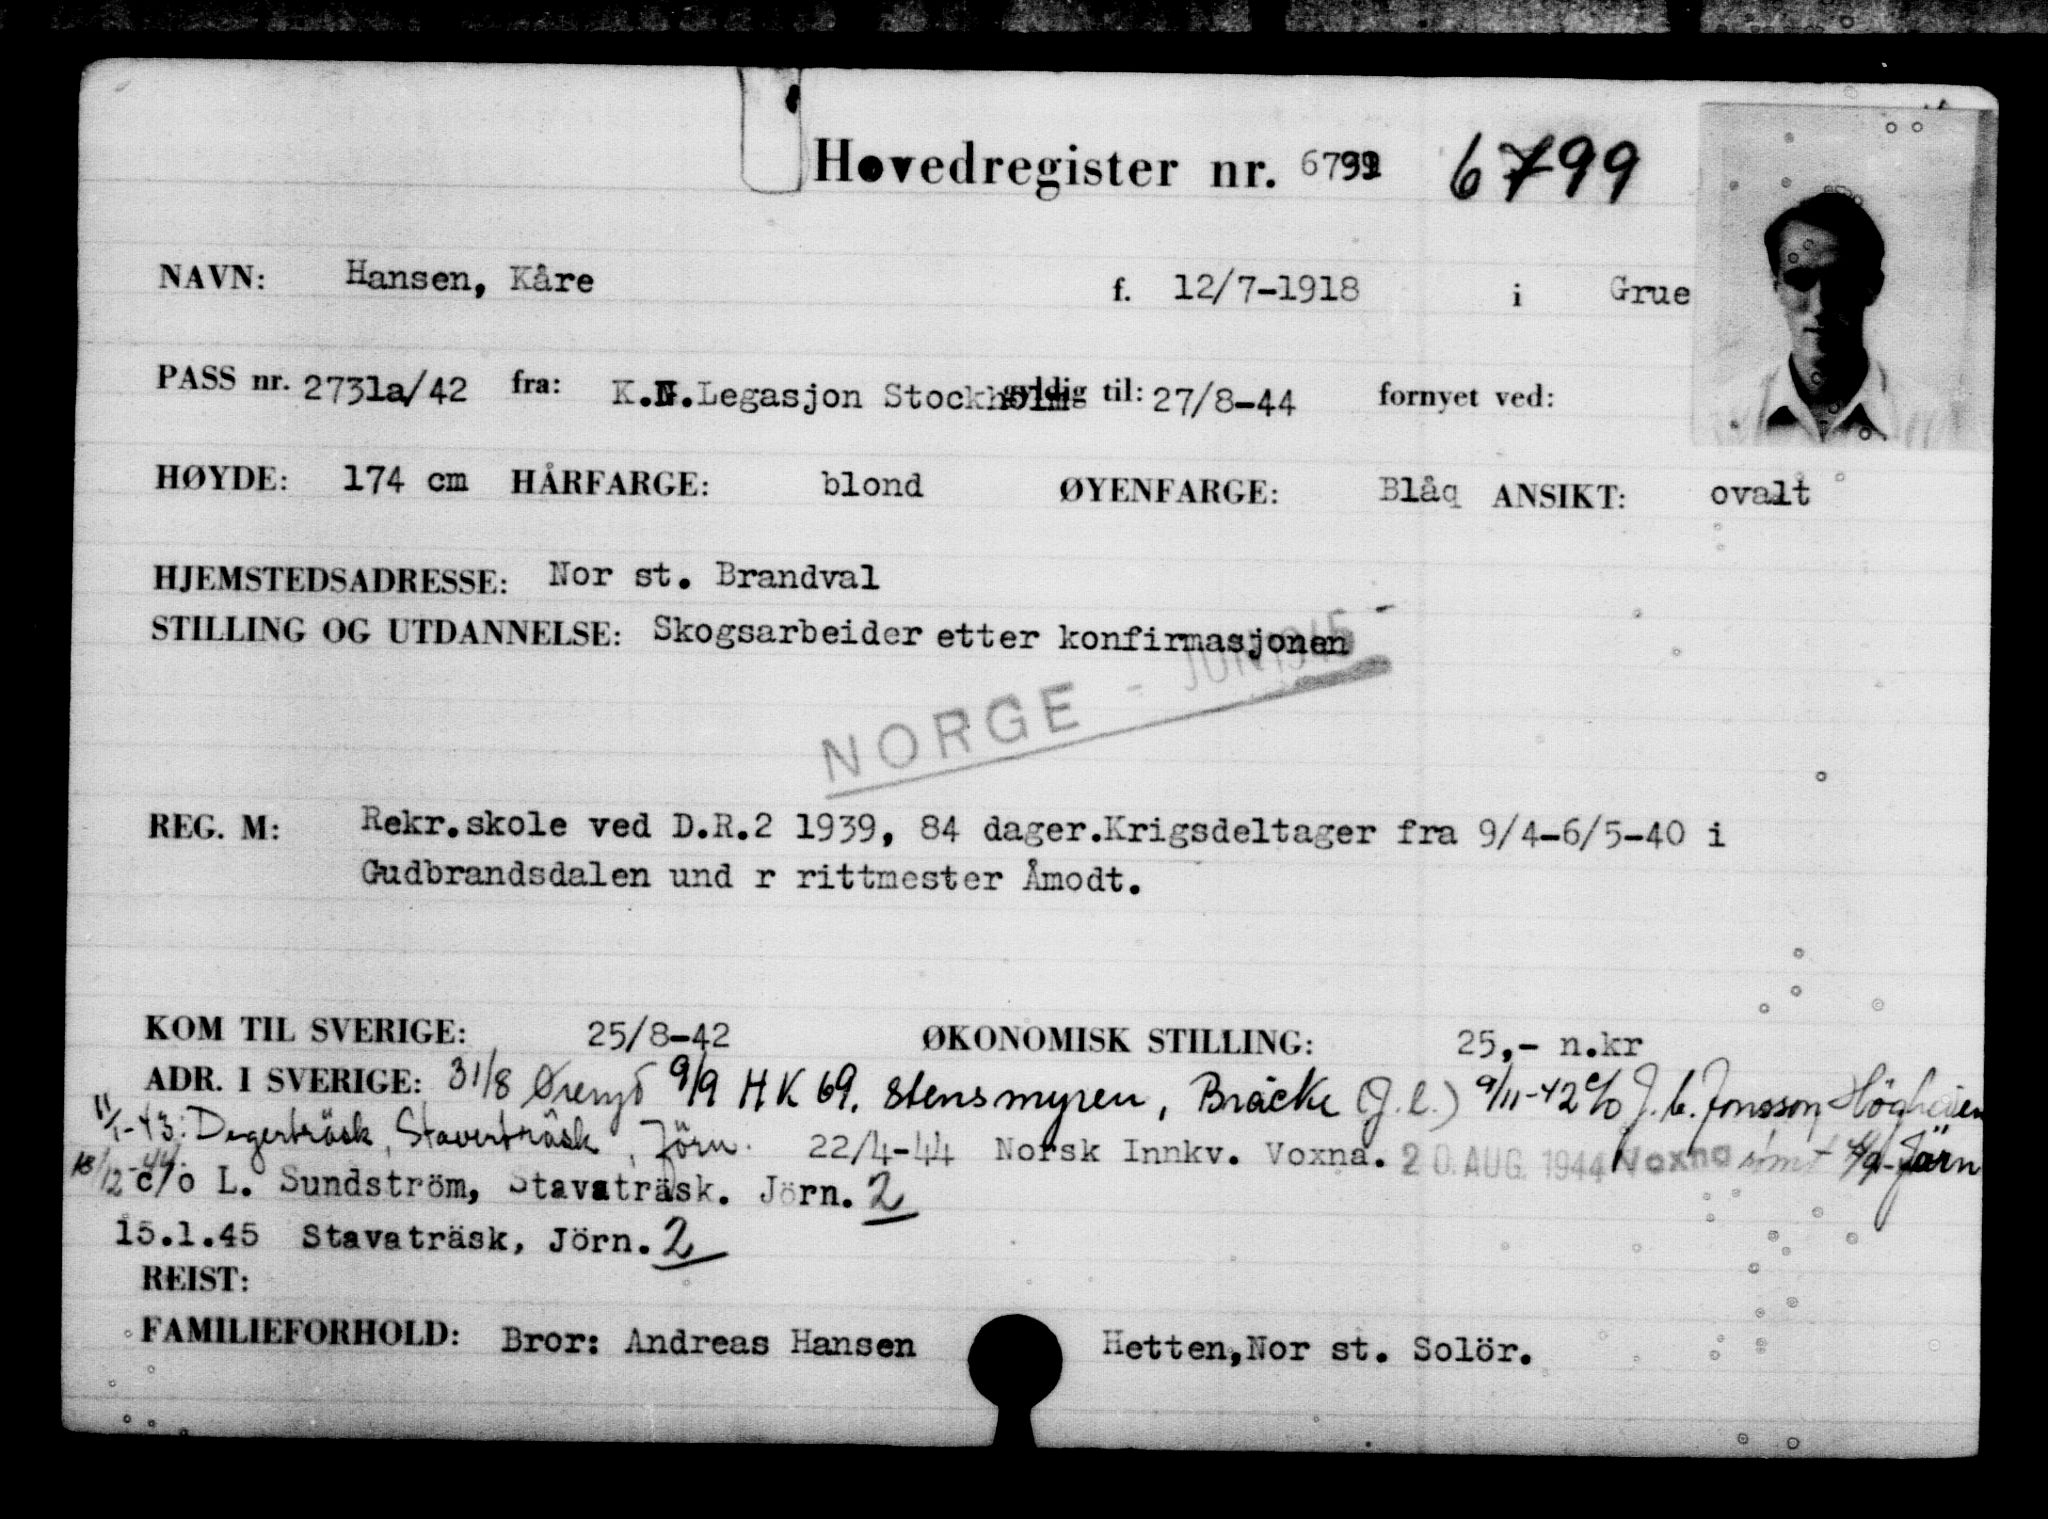 Hovedregister nr. 6799 6799
NAVN: Hansen, Kåre f. 12/7-1918 i Grue
PASS nr. 2731a/42 fra: K.N.Legasjon Stockholm gyldig til: 27/8-44 fornyet ved:
HØYDE: 174 cm HÅRFARGE: blond ØYENFARGE: Blåq ANSIKT: ovalt
HJEMSTEDSADRESSE: Nor st. Brandval
STILLING OG UTDANNELSE: Skogsarbeider etter konfirmasjonen
NORGE - JUNI 1945 -
REG. M: Rekr.skole ved D.R.2 1939, 84 dager.Krigsdeltager fra 9/4-6/5-40 i
Gudbrandsdalen und r rittmester Åmodt.
KOM TIL SVERIGE: 25/8-42 ØKONOMISK STILLING: 25,- n.kr
ADR. I SVERIGE: 31/8 Øreryd 9/9 HK 69. Stensmyren, Bräcke (J.l.) 9/11-42 c/o J. C. Jonsson, Högheden
11/1-43: Degerträsk, Staverträsk, Jörn. 22/4-44 Norsk Innkv. Voxna. 20. AUG. 1944 Voxna Järn
18/12-44 c/o L. Sundström, Stavaträsk. Jörn. 2
15.1.45 Stavaträsk, Jörn. 2
REIST:
FAMILIEFORHOLD: Bror: Andreas Hansen Hetten,Nor st. Solör.